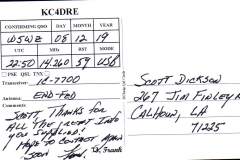 KC4DRE
CONFIRMING QSO DAY MONTH YEAR
W5WZ 08 12 19
UTC MHz RST MODE
22:50 14.260 59 USB
PSE QSL TNX
IC-7700
Transceiver
END-FED
Antenna
SCOTT, THANKS FOR
ALL THE INFO
YOU SUPPLIED!
HOPE TO CONTACT AGAIN
SOON
SCOTT DICKSON
267 JIM FINLEY R
CALHOUN, LA
71225